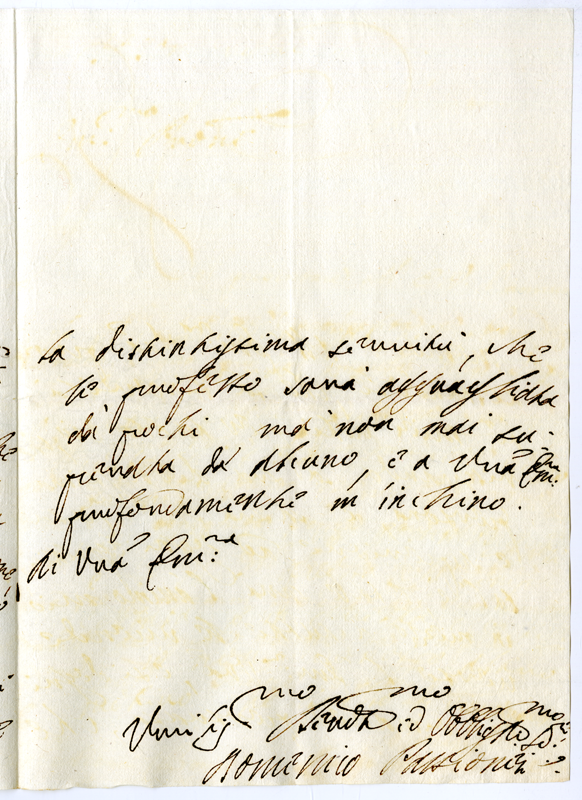 la distintissima servitù, che
le professo sarà agguagliata
da pochi mà non mai su-
perata da alcuno, e a Vrã Em:
profondamente m'inchino.
di Vrã Em:za
Umilis.mo ed Obblig.mo
Domenico Passionei